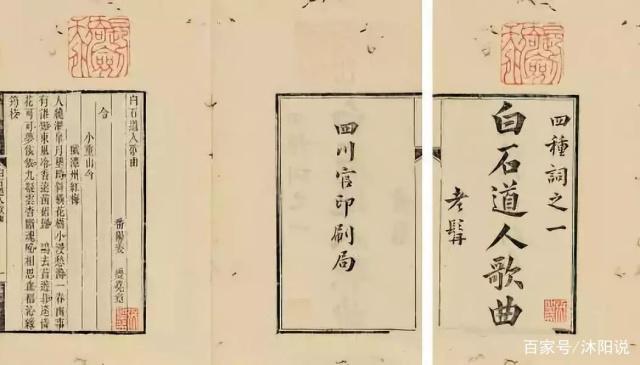 四種詞之一
白石道人歌曲
老髯
四川官印刷局
白石道人歌曲
番陽姜 夔堯章
令
小重山令
賦潭州紅梅
人繞湘皋月墜時斜橫花樹小浸愁漪一春幽事
有誰知東風冷香遠茜裙歸 鷗去昔遊非遙憐
花可可夢依依九疑雲杳斷魂啼相思血都沁綠
筠枝
百家号/沐阳说